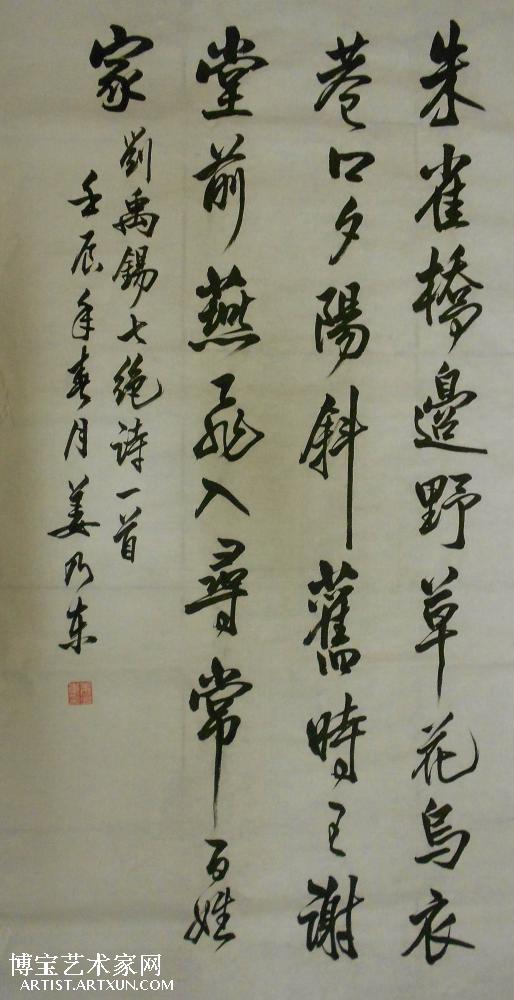 朱雀橋邊野草花烏衣
巷口夕陽斜舊時王謝
堂前燕飛入尋常百姓
家
劉禹錫七絕詩一首
壬辰年春月姜乃東
博宝艺术家网
ARTIST.ARTXUN.COM